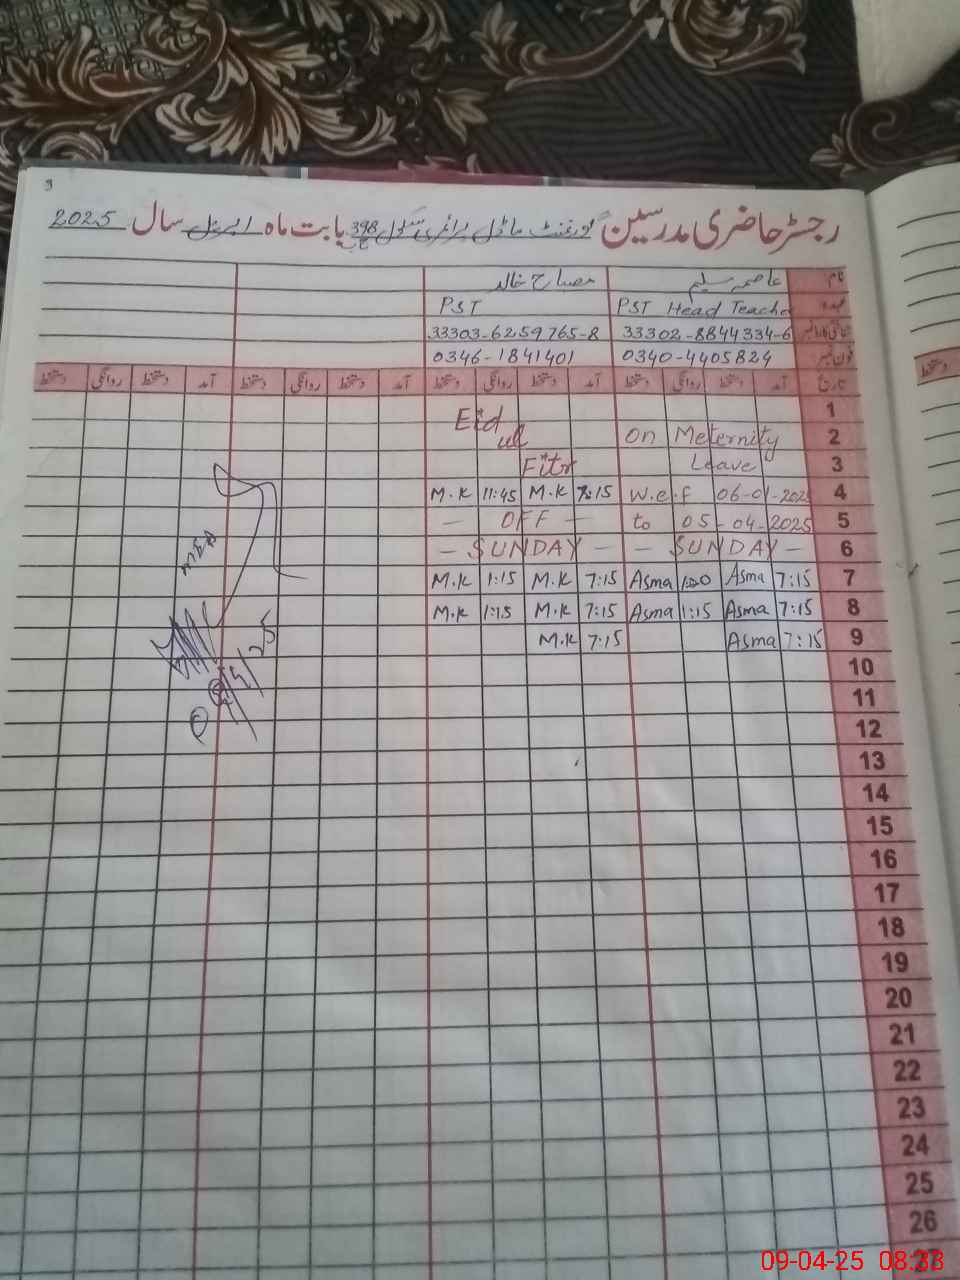 9
رجسٹر حاضری مدرسین گورنمنٹ ماڈل پرائمری سکول 398 ج ب بابت ماہ اپریل سال 2025
نام عاصمہ سلیم مصباح خالد
عہدہ PST Head Teacher PST
شناختی کارڈ نمبر 33302-8844334-6 33303-6259765-8
فون نمبر 0340-4405824 0346-1841401
تاریخ آمد دستخط روانگی دستخط آمد دستخط روانگی دستخط آمد دستخط روانگی دستخط آمد دستخط روانگی دستخط
1
Eid ul On Meternity 2
Fitr Leave 3
M.K 11:45 M.K 7:15 w.e.f 06-01-202 4
— OFF — to 05-04-2025 5
— SUNDAY — — SUNDAY — 6
M.K 1:15 M.K 7:15 Asma 1:20 Asma 7:15 7
M.K 1:15 M.K 7:15 Asma 1:15 Asma 7:15 8
M.K 7:15 Asma 7:15 9
10
11
12
13
14
15
16
17
18
19
20
21
22
23
24
25
26
27
09-04-25 08:33